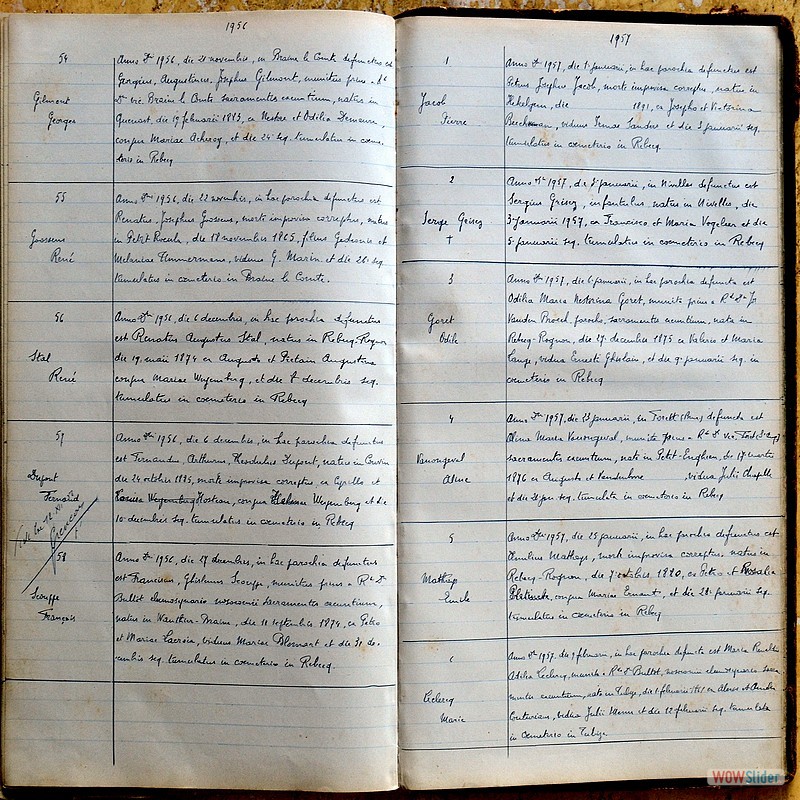 1956
54
Gilmont
Georges
Anno Dni 1956, die 21 novembris, in Braine le Comte defunctus est
Georgius, Augustinus, Josephus Gilmont, munitus prius a Rdo
Do vic. Braine le Comte sacramentis exeuntium, natus in
Quenast, die 19 februarii 1875, ex Nestore et Odilia Demeure,
conjux Mariae et die 24 seq. tumulatus in coeme-
terio in Rebecq
55
Goossens
René
Anno Dni 1956, die 22 novembris, in hac parochia defunctus est
Renatus, Josephus Goossens, morte improvisa correptus, natus
in Petit Roeulx, die 18 novembris 1865, filius Gedeonis et
Melaniae Timmermans, viduus G. Marin et die 26 seq.
tumulatus in cemeterio in Braine le Comte.
56
Stal
René
Anno Dni 1956, die 6 decembris, in hac parochia defunctus
est Renatus Augustus Stal, natus in Rebecq-Rognon
die 19 maii 1874 ex Augusto et Augustina
conjux Mariae Weyemberg, et die decembris seq.
tumulatus in coemeterio in Rebecq
57
Dupont
Fernand
Anno Dni 1956, die 6 decembris, in hac parochia defunctus
est Fernandus, Arthurus, Dupont, natus in Couvin
die 24 octobris 1895, morte improvisa correptus, ex Cyrillo et
Hostian, conjux Weyemberg et die
10 decembris seq. tumulatus in coemeterio in Rebecq
58
Scouffe
François
Anno Dni 1956, die 27 decembris, in hac parochia defunctus
est Franciscus, Ghislenus Scouffe, munitus prius a Rdo Do
Bullot elemosynario nosocomii sacramentis exeuntium,
natus in Wauthier-Braine, die 11 septembris 1874, ex Petro
et Mariae Lacroix, viduus Mariae Blommart et die 31 de-
cembris seq. tumulatus in coemeterio in Rebecq.
1957
1
Jacob
Pierre
Anno Dni 1957, die 1a januarii, in hac parochia defunctus est
Petrus Josephus Jacob, morte improvisa correptus, natus in
Hekelgem, die 1891, ex Josepho et Victorina
Beeckman, viduus Irmae Sanders et die 3 januarii seq.
tumulatus in coemeterio in Rebecq
2
Serge Geisez
†
Anno Dni 1957, die 3a januarii, in Nivelles defunctus est
Sergius Geisez, infantulus, natus in Nivelles, die
3 januarii 1957, ex Francisco et Maria Vogeleer et die
5 januarii seq. tumulatus in coemeterio in Rebecq
3
Goret
Odile
Anno Dni 1957, die 6 januarii, in hac parochia defuncta est
Odilia Maria Nestorina Goret, munita prius a Rdo Do
Vanden Broeck, parocho, sacramentis exeuntium, nata in
Rebecq-Rognon, die 27 decembris 1875 ex Valerio et Maria
Lange, vidua Ernesti Ghislain, et die 9a januarii seq. in
coemeterio in Rebecq
4
Vanongeval
Aline
Anno Dni 1957, die 23 januarii, in defuncta est
Alina Maria Vanongeval, munita prius a Rdo Do vic.
sacramentis exeuntium, nata in Petit-Enghien, die 17 martis
1876 ex Augusto et vidua Julii Chapelle
et die jan seq. tumulata in coemeterio in Rebecq
5
Mathys
Emile
Anno Dni 1957, die 25 januarii, in hac parochia defunctus est
Aemilius Mathys, morte improvisa correptus, natus in
Rebecq-Rognon, die 7 octobris 1880, ex Petro et Rosalia
conjux Mariae Ernaut, et die 28a januarii seq.
tumulatus in coemeterio in Rebecq
6
Leclercq
Marie
Anno Dni 1957, die februarii, in hac parochia defuncta est Maria
Odilia Leclercq, munita a Rdo Do Bullot, nosocomii elemosynario, sacra-
mentis exeuntium, nata in Tubize, die 1 februarii ex et
vidua Julii et die 12 februarii seq. tumulata
in Cemeterio in Tubize
WOWSlider